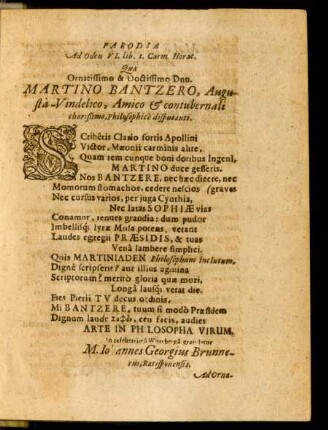 PARODIA
Ad Oden VI. lib. 1. Carm. Horat.
Quâ
Ornatissimo & Doctissimo Dnn.
MARTINO BANTZERO, Augu-
stâ-Vindelico, Amico & contubernali
charissimo, Philosophicè disputanti.
SCribêris Clario fortis Apollini
Victor, Mæonii carminis alite,
Quam rem cunque boni dotibus Ingenî,
MARTINO duce gesseris.
Nos BANTZERE, nec hæc dicere, nec
Momorum stomachos, cedere nescios (graves
Nec cursus varios, per juga Cynthia,
Nec latas SOPHIÆ vias
Conamur, tenues grandia: dum pudor
Imbellisq; lyræ Musa potens, vetant
Laudes egregii PRÆSIDIS, & tuas
Venâ lambere simplici.
Quis MARTINIADEN Philosophum inclutum,
Dignè scripserit? aut illius agmina
Scriptorum? meritò gloria quæ mori,
Longâ lausq; vetat die.
Fies Pierii TU decus ordinis,
Mi BANTZERE, tuum si modò Præsidem
Dignum laude ceu facis, audies
ARTE IN PHILOSOPHA VIRUM.
In celeberrimâ
M. Johannes Georgius Brunne-
rus, Ratisponensis.
Ad Orna-